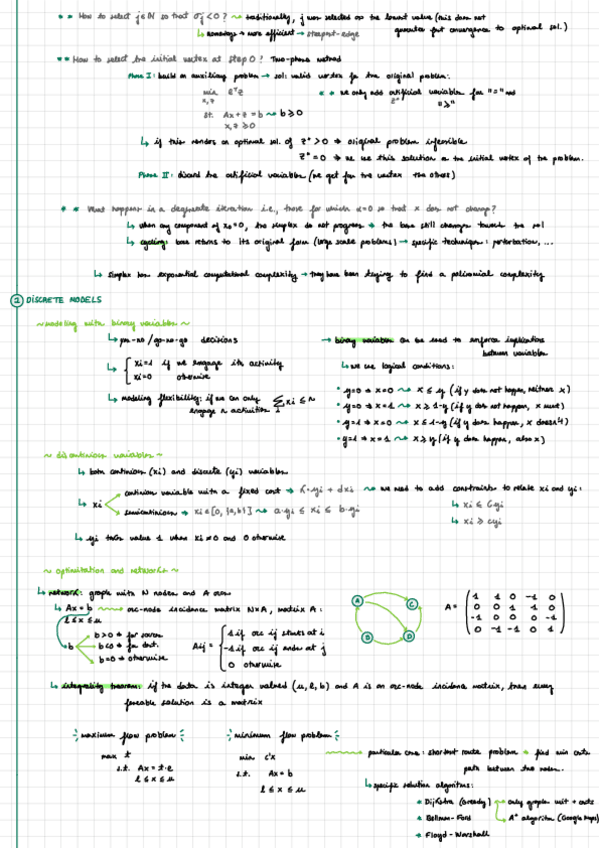 ** How to select j∈N so that σj<0? → traditionally, j was selected as the lowest value (this does not
guarantee fast convergence to optimal sol.)
↳ nowadays → more efficient → steepest-edge
** How to select the initial vertex at step 0? Two-phase method
Phase I: build an auxiliary problem → sol: valid vertex for the original problem:
min eᵀz
x,z
** we only add artificial variables for "=" and
"≥"
st. Ax+z=b → b≥0
x,z≥0
↳ if this renders an optimal sol. of z*>0 → original problem infeasible
z*=0 → we use this solution as the initial vertex of the problem.
Phase II: discard the artificial variables (we get for the vertex the others)
** What happens in a degenerate iteration i.e., those for which α=0 so that x does not change?
↳ when any component of xB=0, the simplex do not progress → the base still changes toward the sol
↳ cycling: base returns to its original form (large scale problems) → specific techniques: perturbation, ...
↳ simplex has exponential computational complexity → they have been trying to find a polinomial complexity
2 DISCRETE MODELS
~ modeling with binary variables ~
↳ yes-no / go-no-go decisions
↳ { xi=1 if we engage its activity
xi=0 otherwise
↳ modeling flexibility: if we can only engage n activities Σxi ≤ n
→ binary variables can be used to enforce implications
between variables
↳ we use logical conditions:
• y=0 → x=0 → x ≤ y (if y does not happen, neither x)
• y=0 → x=1 → x ≥ 1-y (if y does not happen, x must)
• y=1 → x=0 → x ≤ 1-y (if y does happen, x doesn't)
• y=1 → x=1 → x ≥ y (if y does happen, also x)
~ discontinuous variables ~
↳ both continuous (xi) and discrete (yi) variables
↳ xi continuous variable with a fixed cost → k·yi + dxi → we need to add constraints to relate xi and yi:
semicontinuous → xi∈[0,{a,b}] → a·yi ≤ xi ≤ b·yi
↳ xi ≤ Cyi
↳ xi ≥ cyi
↳ yi takes value 1 when xi≠0 and 0 otherwise
~ optimization and networks ~
↳ network: graph with N nodes and A arcs
↳ Ax=b → arc-node incidence matrix N×A, matrix A:
l≤x≤u
b b>0 → for source
b<0 → for dest.
b=0 → otherwise
Aij = { 1 if arc ij starts at i
-1 if arc ij ends at j
0 otherwise
A C B D
A = ( 1 1 0 -1 0
0 0 1 1 0
-1 0 0 0 -1
0 -1 -1 0 1 )
↳ integrality theorem: if the data is integer valued (u,l,b) and A is an arc-node incidence matrix, then every
feasible solution is a matrix
maximum flow problem
max t
s.t. Ax = t·e
l≤x≤u
minimum flow problem
min c'x
s.t. Ax=b
l≤x≤u
particular case: shortest route problem → find min cost
path between two nodes.
↳ specific solution algorithms:
* Dijkstra (Greedy) → only graphs with + costs
↳ A* algorithm (Google Maps)
* Bellman-Ford
* Floyd-Warshall